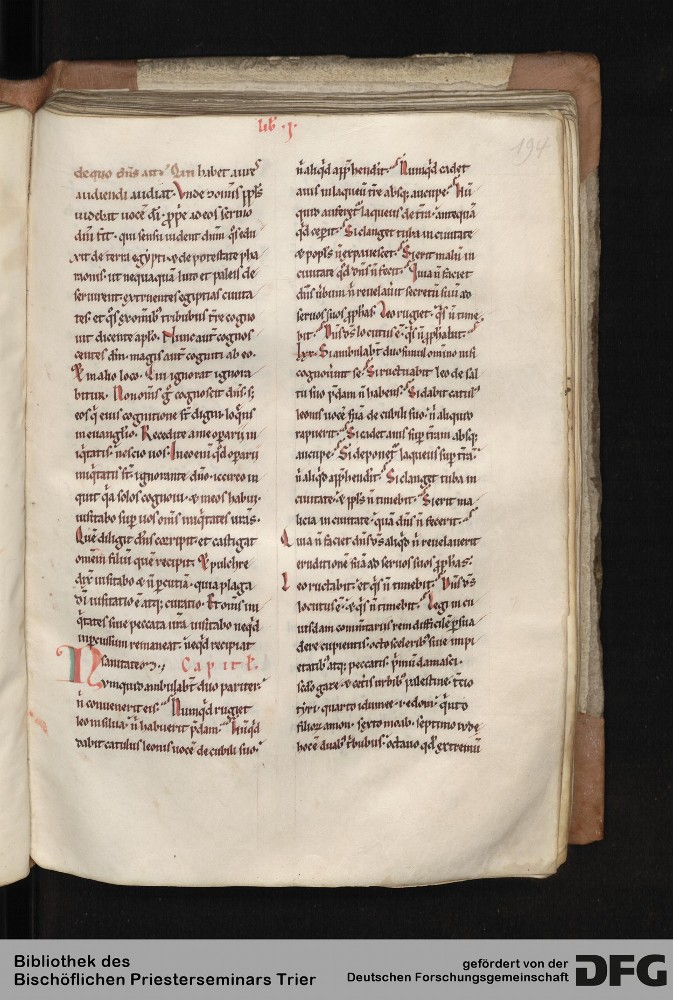 lib · j ·
194
de quo dn̄s ait · Qui habet aures
audiendi audiat · Unde & om̄is ppl̄s
uidebit uocē dī · ppͥe ad eos sermo
dn̄i fit · qui sensu uident dn̄m · q̇s edu
xit de terra egypti · & de potestate pha
raonis · ut nequaquā luto et paleis de
seruirent · extruentes egiptias ciuita
tes · et q̇s ex omnib; tribubus tr̄e cogno
uit dicente apl̄o · Nunc aut̄ cognos
centes dm̄ · magis aut̄ cogniti ab eo ·
in alio loco · Qui ignorat ignora
bitur · Non om̄is g̊ cognoscit dn̄s · s;
eos q̇ eius cognitione st̄ digni · loq̇ns
in euanglio · Recedite a me operarii in
iq̇tatis · nescio uos · In eo enī qd̄ operarii
iniq̇tatis st̄ · ignorante dn̄o ·
quit q̇a solos cognoui · & meos habui
uisitabo sup̄ uos om̄s iniq̇tates ur̄as ·
Quē diligit dn̄s corripit · et castigat
omēm filiū quē recipit · & pulchre
dix̄ uisitabo & n̄ percutiā · quia plaga
dī uisitatio ē atq; curatio · Et om̄s ini
q̇tates siue peccata ur̄a uisitabo · neqd̄
inpercussum remaneat · n̄ eqd̄ recipiat
sanitatē · Capitl̄ ·
Nunquid ambulab̄t duo pariter ·
n̄ conuenerit eis · Nunqd̄ rugiet
leo in silua · n̄ habuerit p̄dam · Nūqd̄
dabit catulus leonis uocē de cubili suo ·
n̄ aliqd̄ app̄hendit · Nunqd̄ cadet
auis in laqueū tr̄e absq; aucupe · Nū
quid auferet̄ laqueus de tr̄a · antequā
qd̄ ceperit · Si clanget tuba in ciuitate
& popl̄s n̄ expauescet · Si erit malū in
ciuitate qd̄ dn̄s n̄ fecit · Quia n̄ faciet
dn̄s ūbum n̄ reuelauit secretū suū ad
seruos suos pphas · Leo rugiet · q̇s n̄ time
bit · Dn̄s ds̄ locutus ē · q̇s n̄ pphabit ·
lxx · Si ambulab̄t duo simul omīno nisi
cognouīnt se · Si ructuabit leo de sal
tu suo p̄dam n̄ habens · Si dabit catul̄
leonis uocē suā de cubili suo · n̄ aliquid
rapuerit · Si cadet auis sup̄ tr̄am absq;
aucupe · Si deponet̄ laqueus sup̄ tr̄a ·
n̄ aliqd̄ app̄hendit · Si clanget tuba in
ciuitate · & ppl̄s n̄ timebit · Si erit ma
licia in ciuitate · quā dn̄s n̄ fecerit ·
Quia n̄ faciet dn̄s ds̄ aliqd̄ · n̄ reuelauerit
eruditionē suā ad seruos suos pphas ·
Leo ructabit · et q̇s n̄ timebit · Dn̄s ds̄
locutus ē · & q̇s n̄ timebit · Legi in cu
iusdam comm̄tariis rem difficilē p̄sua
dere cupientis · octo sceleribus siue impi
etatib; atq; peccatis · pͥmū damasci ·
scd̄o gaze · & cet̄is urbib; palestine · t̄cio
tyri · quarto idumee · i · edom · q̇nto
filior̄ amon · sexto moab · septimo iude
hoc ē duab; tribubus · octauo qd̄ extremū
Bibliothek des
Bischöflichen Priesterseminars Trier
gefördert von der
Deutschen Forschungsgemeinschaft
DFG